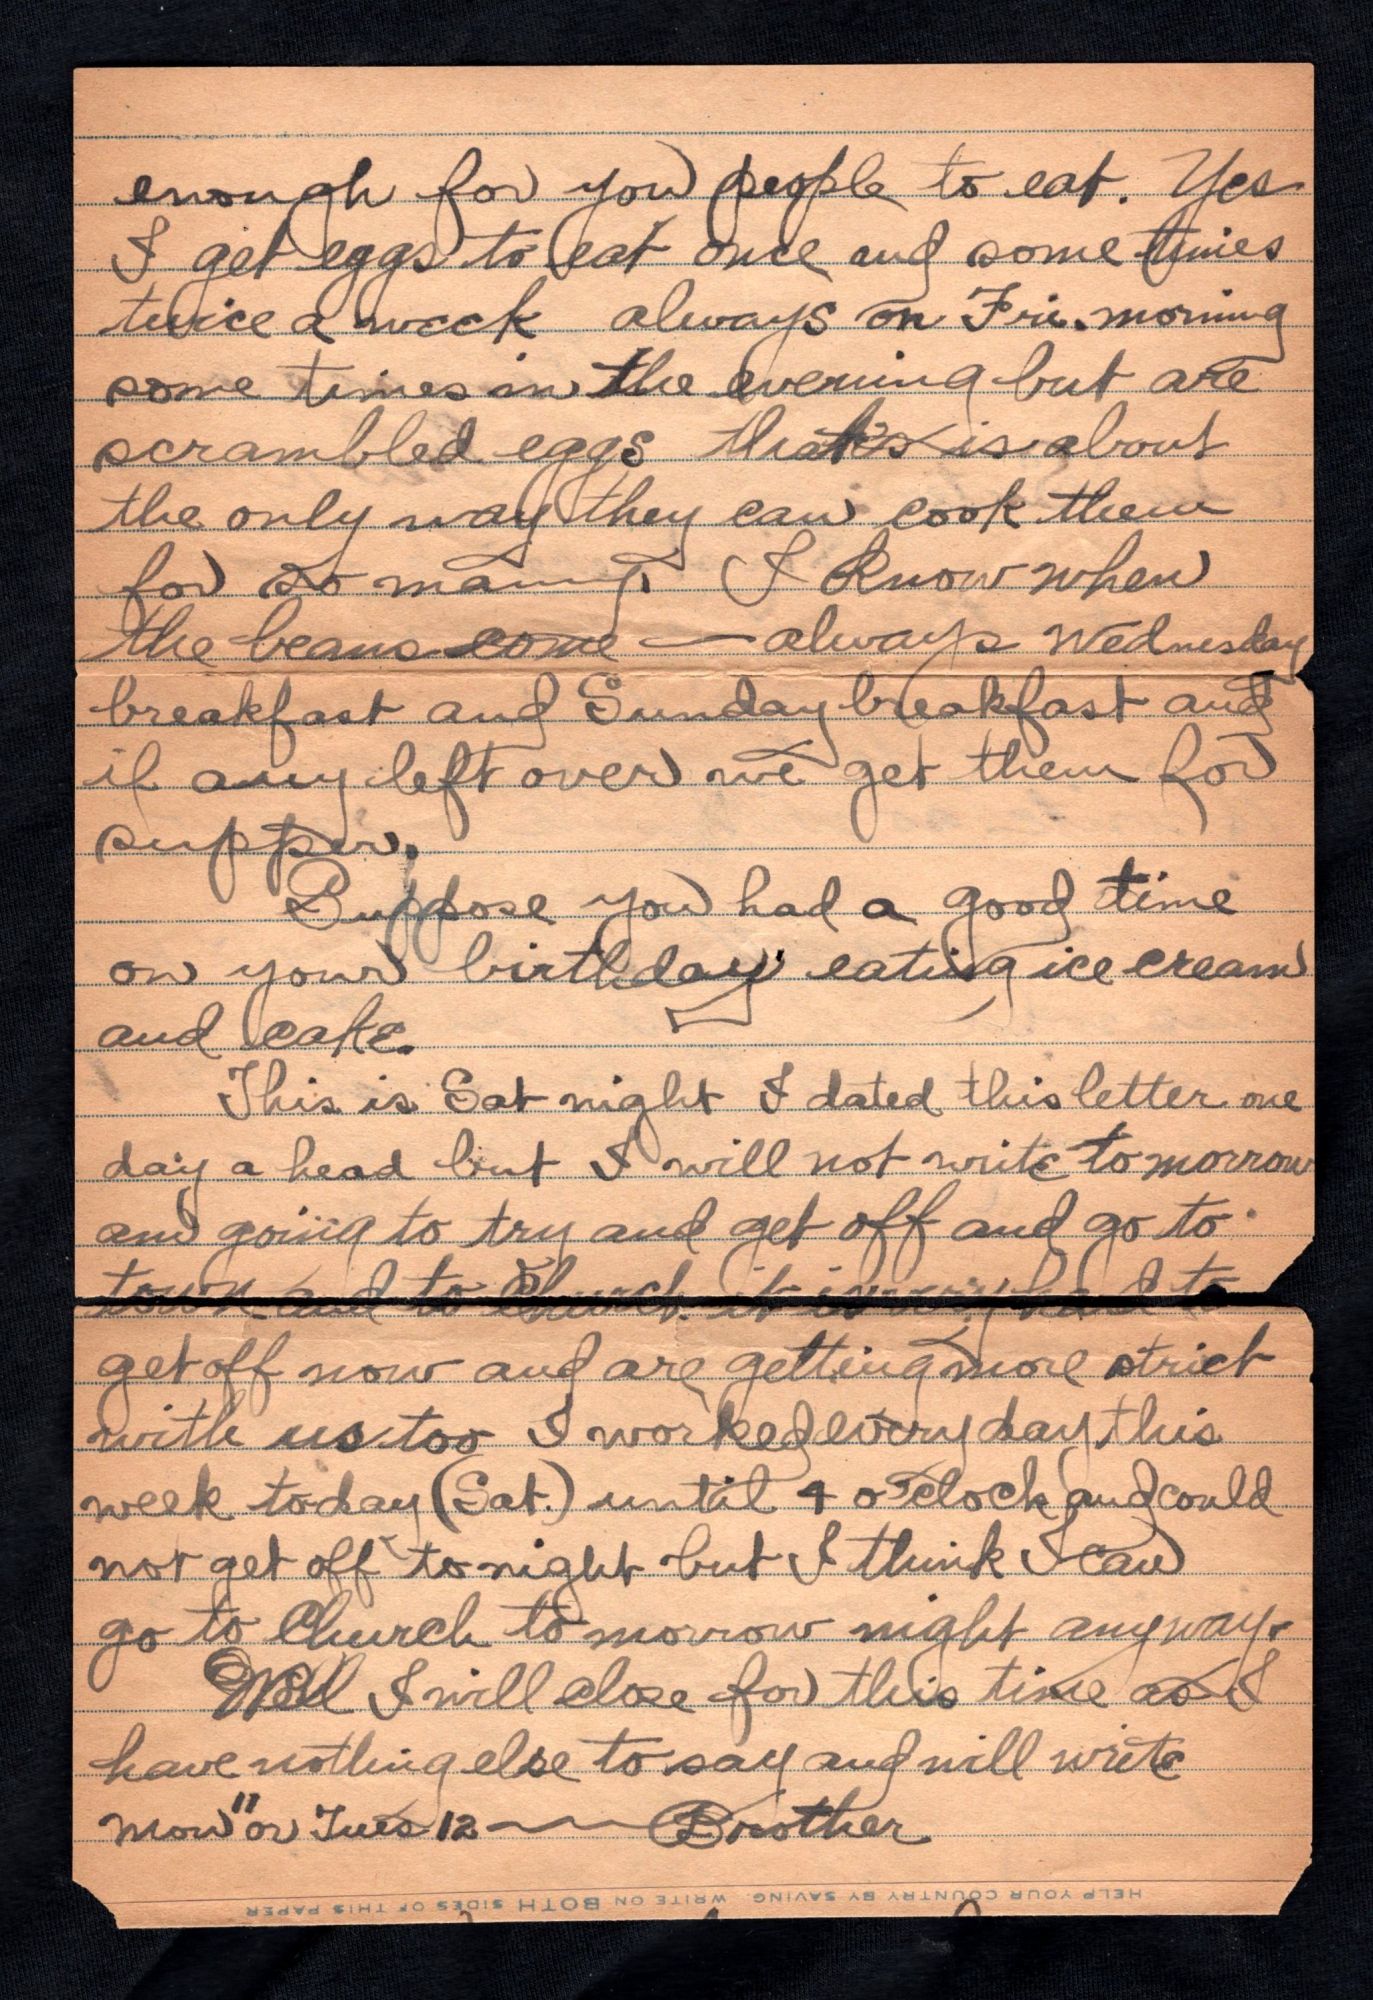 enough for you people to eat. Yes
I get eggs to eat once and some times
twice a week always on Fri. morning
some times in the evening but are
scrambled eggs that's is about
the only way they can cook them
for so many. I know when
the beans come — always Wednesday
breakfast and Sunday breakfast and
if any left over we get them for
supper.
Suppose you had a good time
on your birthday eating ice cream
and cake.
This is Sat night I dated this letter one
day a head but I will not write to morrow
am going to try and get off and go to
town and to Church. it is very hard to
get off now and are getting more strict
with us too I worked every day this
week today (Sat.) until 4 o'clock and could
not get off to night but I think I can
go to Church to morrow night anyway.
Well I will close for this time as I
have nothing else to say and will write
Mon 11 or Tues 12 —— Brother
HELP YOUR COUNTRY BY SAVING. WRITE ON BOTH SIDES OF THIS PAPER